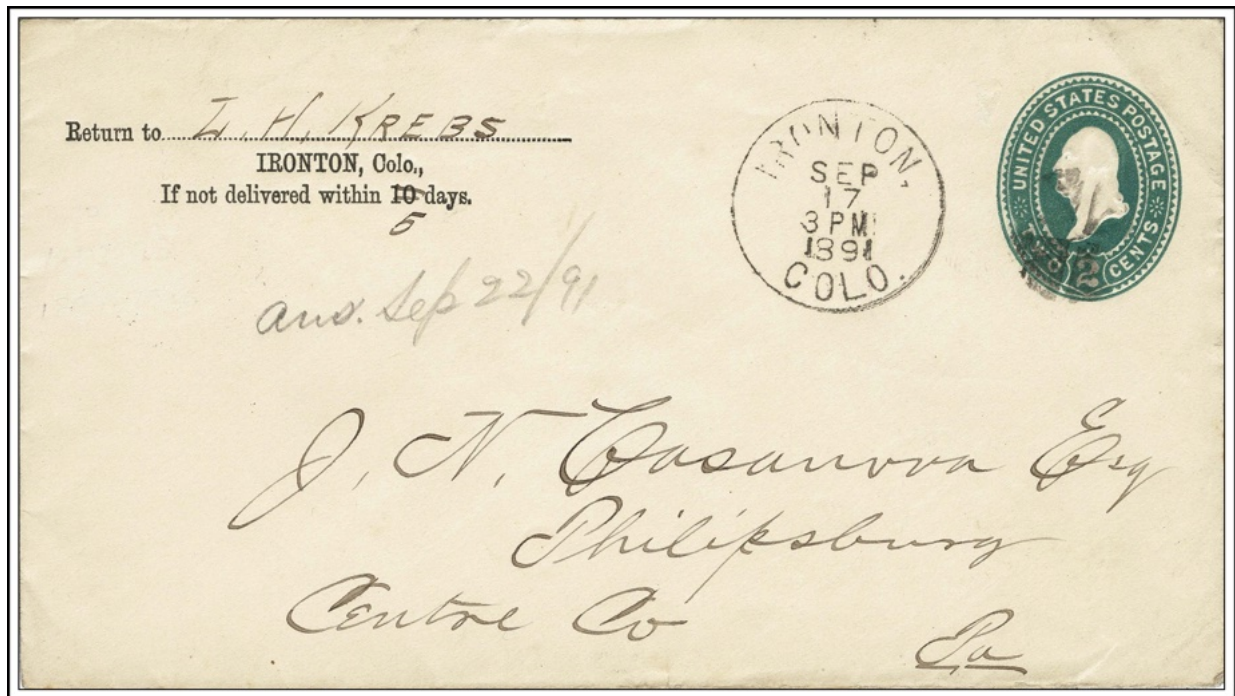 Return to L. H. KREBS
IRONTON, Colo.,
If not delivered within 10 days.
5
ans. Sep 22/91
IRONTON,
SEP
17
3 PM
1891
COLO.
UNITED STATES POSTAGE
TWO 2 CENTS
J. N. Casanova Esq
Philipsburg
Centre Co
Pa